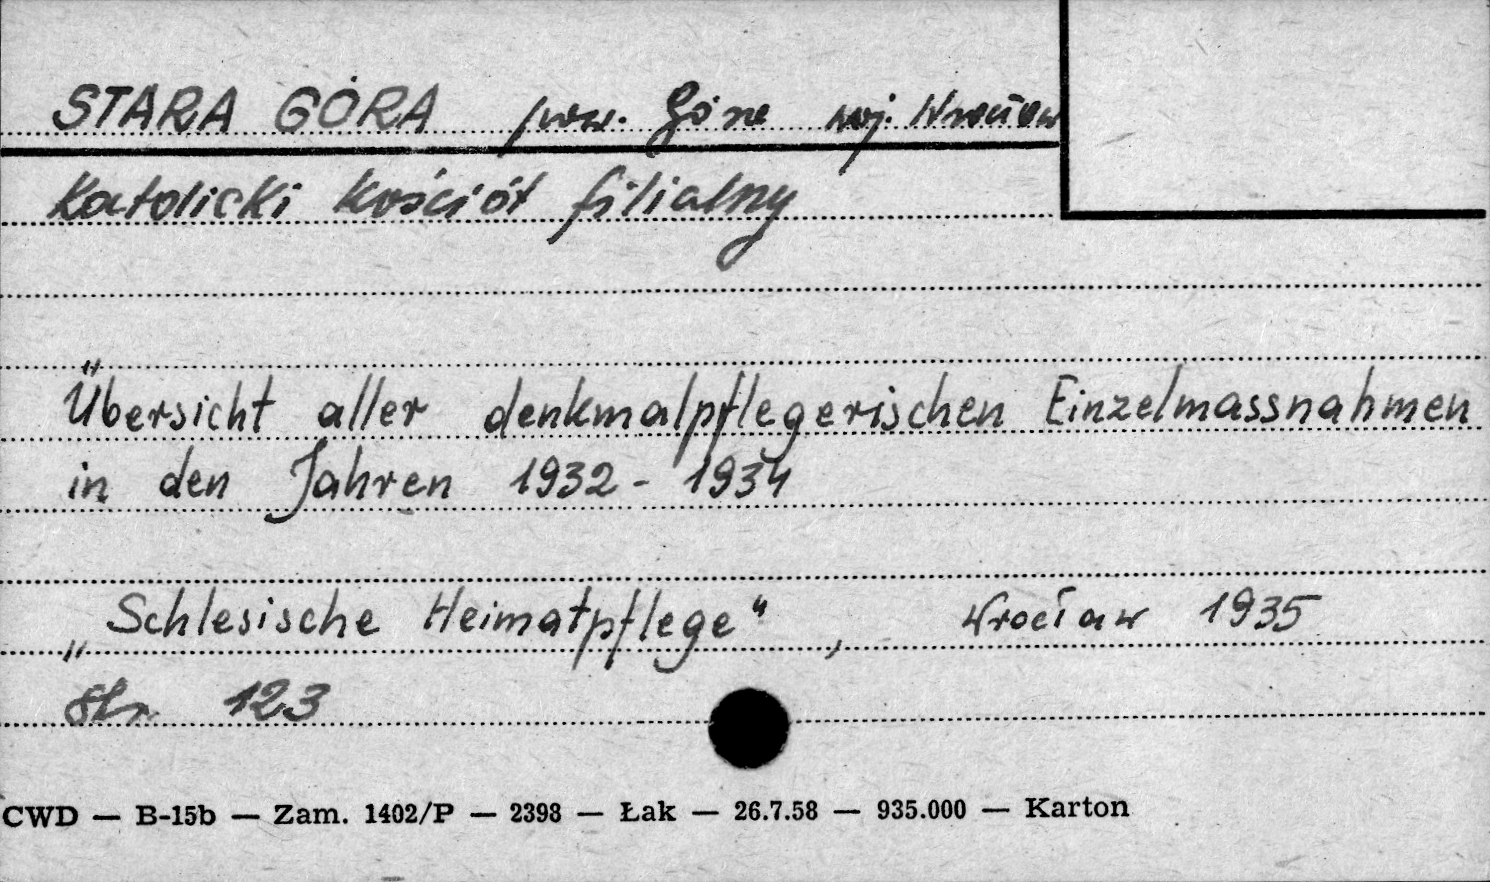 STARA GÓRA pow. Góra woj. Wrocław
Katolicki kościół filialny
Übersicht aller denkmalpflegerischen Einzelmassnahmen
in den Jahren 1932 - 1934
„Schlesische Heimatpflege“, Wrocław 1935
str. 123
CWD — B-15b — Zam. 1402/P — 2393 — Łak — 26.7.58 — 935.000 — Karton